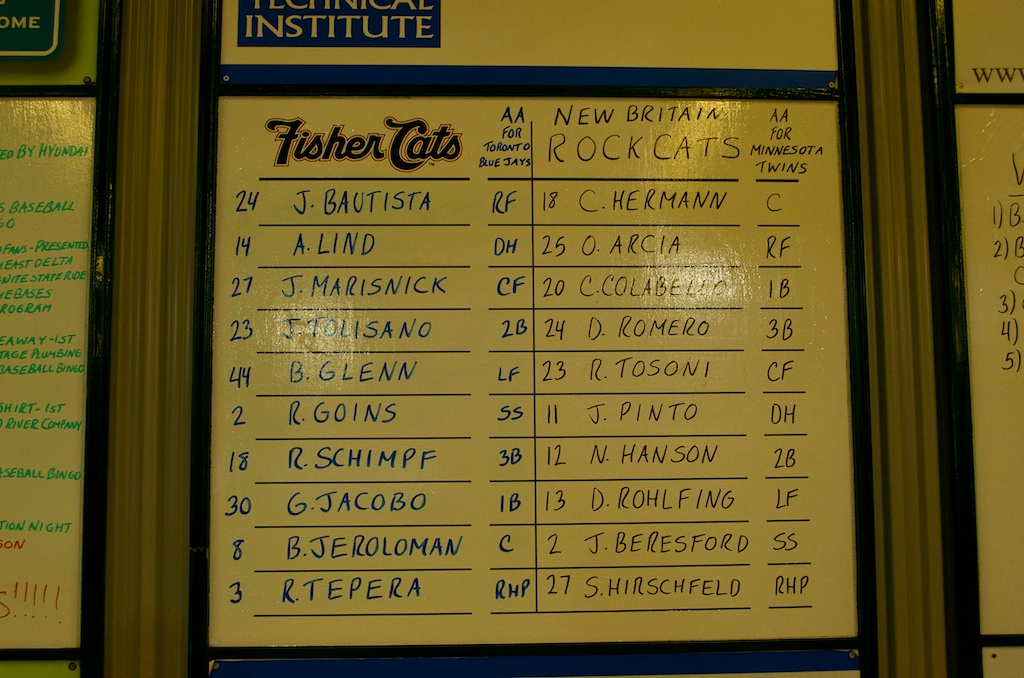 OME
TECHNICAL
INSTITUTE
WWW
BY HYUNDAI
BASEBALL
GO
FANS-PRESENTED
EAST DELTA
NITE STATE RIDE
BASES
PROGRAM
AWAY-1ST
TAGE PLUMBING
BASEBALL BINGO
SHIRT-1ST
RIVER COMPANY
BASEBALL BINGO
TION NIGHT
SON
S!!!!!
Fisher Cats
AA
FOR
TORONTO
BLUE JAYS
NEW BRITAIN
ROCK CATS
AA
FOR
MINNESOTA
TWINS
24 J. BAUTISTA RF 18 C. HERMANN C
14 A. LIND DH 25 O. ARCIA RF
27 J. MARISNICK CF 20 C. COLABELLO 1B
23 J. TOLISANO 2B 24 D. ROMERO 3B
44 B. GLENN LF 23 R. TOSONI CF
2 R. GOINS SS 11 J. PINTO DH
18 R. SCHIMPF 3B 12 N. HANSON 2B
30 G. JACOBO 1B 13 D. ROHLFING LF
8 B. JEROLOMAN C 2 J. BERESFORD SS
3 R. TEPERA RHP 27 S. HIRSCHFELD RHP
1) B
2) B
C
3)
4)
5)